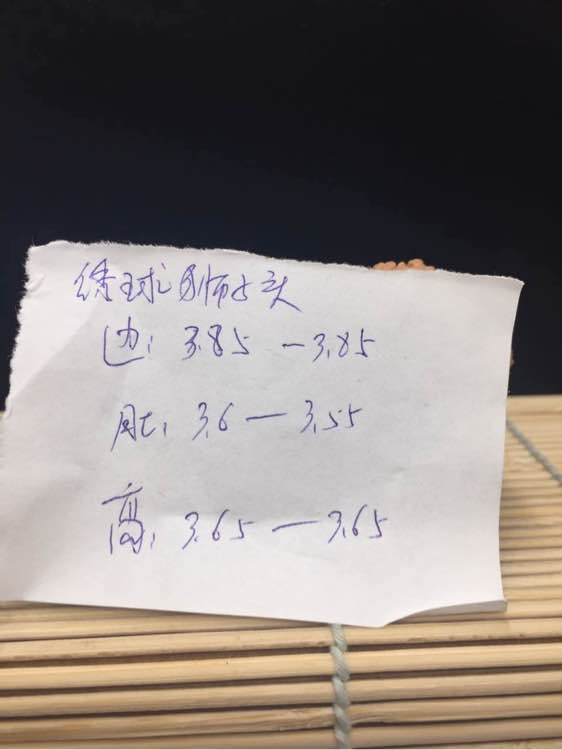 绣球狮子头
边: 3.85 — 3.85
肚: 3.6 — 3.55
高: 3.65 — 3.65